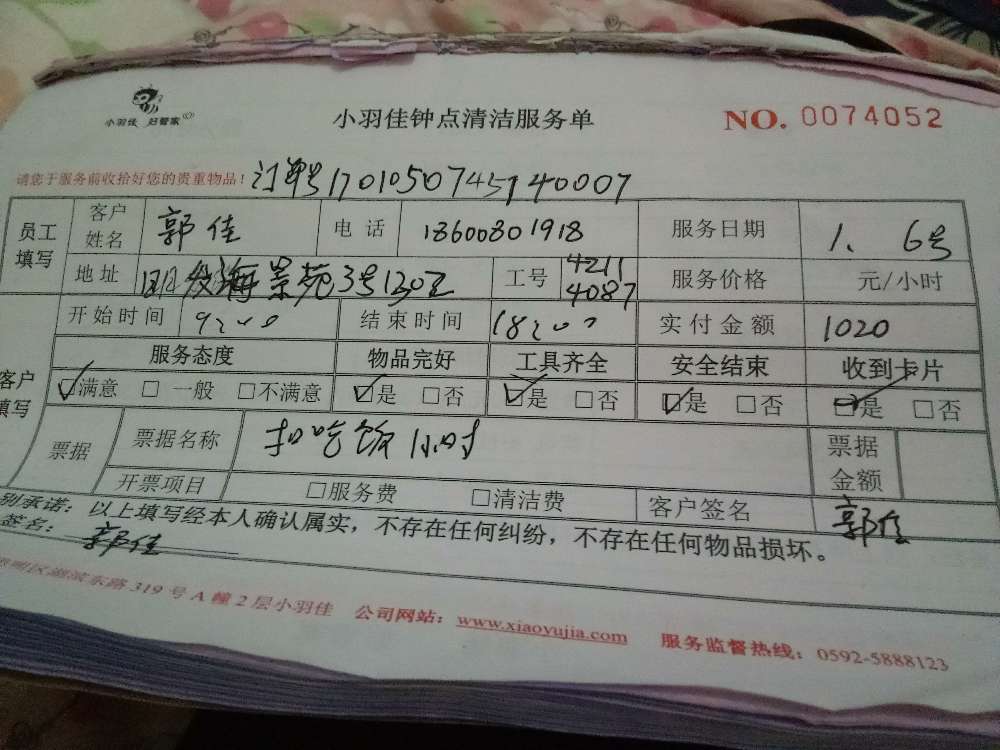 小羽佳 妇管家
小羽佳钟点清洁服务单
NO. 0074052
请您于服务前收拾好您的贵重物品！ 订单号17010507457140007
员工填写 客户姓名 郭佳 电话 18600801918 服务日期 1、6号
地址 海景苑3号130 工号 4211 4087 服务价格 元/小时
开始时间 9:00 结束时间 18:00 实付金额 1020
服务态度 物品完好 工具齐全 安全结束 收到卡片
客户填写 ☑满意 □一般 □不满意 ☑是 □否 ☑是 □否 ☑是 □否 ☑是 □否
票据 票据名称 扣吃饭1小时 票据金额
开票项目 □服务费 □清洁费 客户签名 郭佳
别承诺：以上填写经本人确认属实，不存在任何纠纷，不存在任何物品损坏。
签名：郭佳
明区湖滨东路319号A幢2层小羽佳 公司网站：www.xiaoyujia.com 服务监督热线：0592-5888123